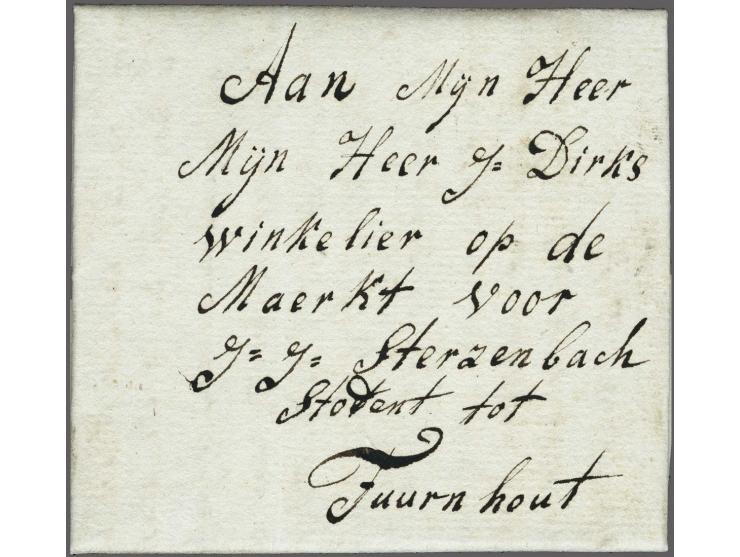 Aan Mijn Heer
Mijn Heer J= Dirks
winkelier op de
Maerkt voor
J= J= Sterzenbach
Stodent tot
Tuurnhout